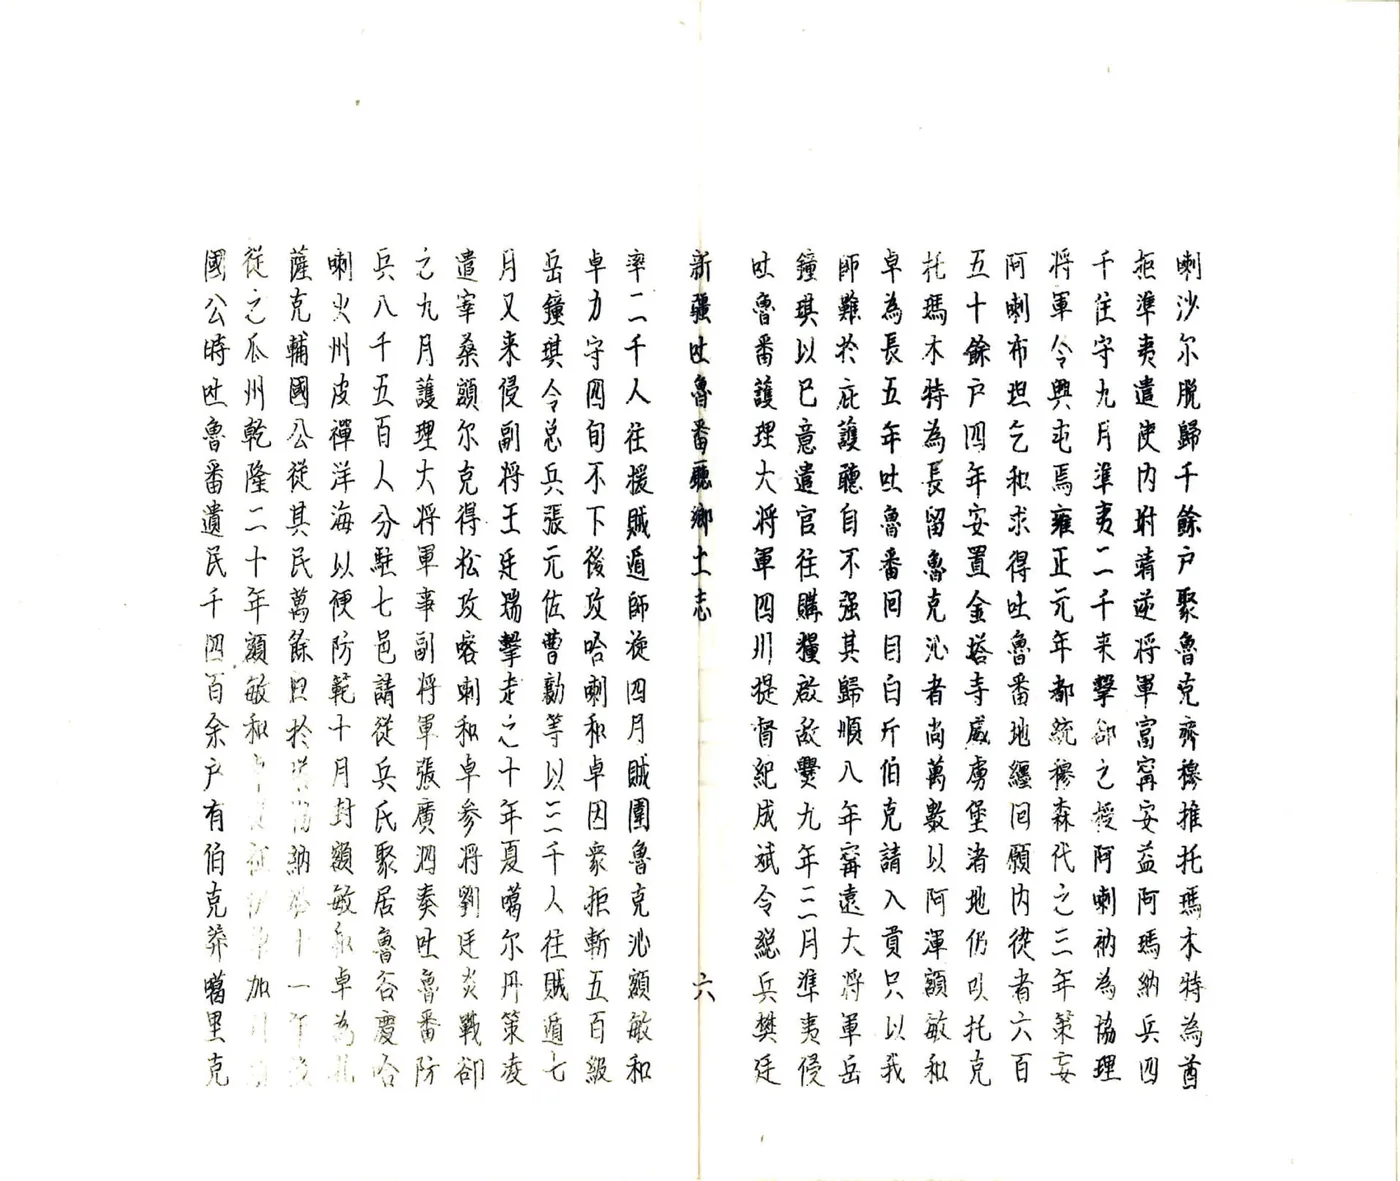 喇沙尔脱歸千餘户聚魯克齊穆推托瑪木特為酋
拒準夷遣使内附靖逆将軍富甯安益阿瑪納兵四
千往守九月準夷二千来擊卻之授阿喇衲為協理
将軍令興屯焉雍正元年都統穆森代之三年策妄
阿喇布坦乞和求得吐魯番地纏回願内徙者六百
五十餘户四年安置金塔寺威虜堡渚地仍以托克
托瑪木特為長留魯克沁者尚萬數以阿渾額敏和
卓為長五年吐魯番回目白斤伯克請入貢只以我
師難於庇護聽自不强其歸順八年甯遠大将軍岳
鐘琪以已意遣官往購糧啟敵釁九年二月準夷侵
吐魯番護理大将軍四川提督紀成斌令総兵樊廷
新疆吐魯番廳鄉土志 六
率二千人往援賊遁師旋四月賊圍魯克沁額敏和
卓力守四旬不下後攻哈喇和卓因衆拒斬五百級
岳鐘琪令总兵張元佐曹勷等以三千人往賊遁七
月又来侵副将王廷瑞擊走之十年夏噶尔丹策凌
遣宰桑額尔克得松攻喀喇和卓参将劉廷炎戰卻
之九月護理大将軍事副将軍張廣泗奏吐魯番防
兵八千五百人分駐七邑請従兵氏聚居魯谷慶哈
喇火州皮禪洋海以便防範十月封額敏和卓為扎
薩克輔國公従其民萬餘 於 納 十一年
従之瓜州乾隆二十年額敏和卓 征 加
國公時吐魯番遺民千四百余户有伯克莽噶里克